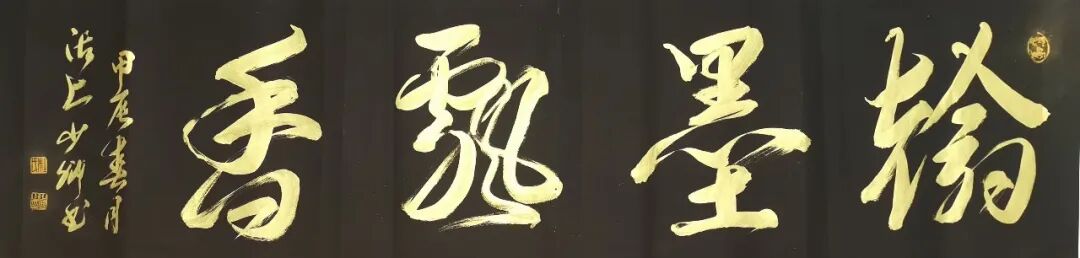 翰墨飘香
甲辰春月
沽上少卿书